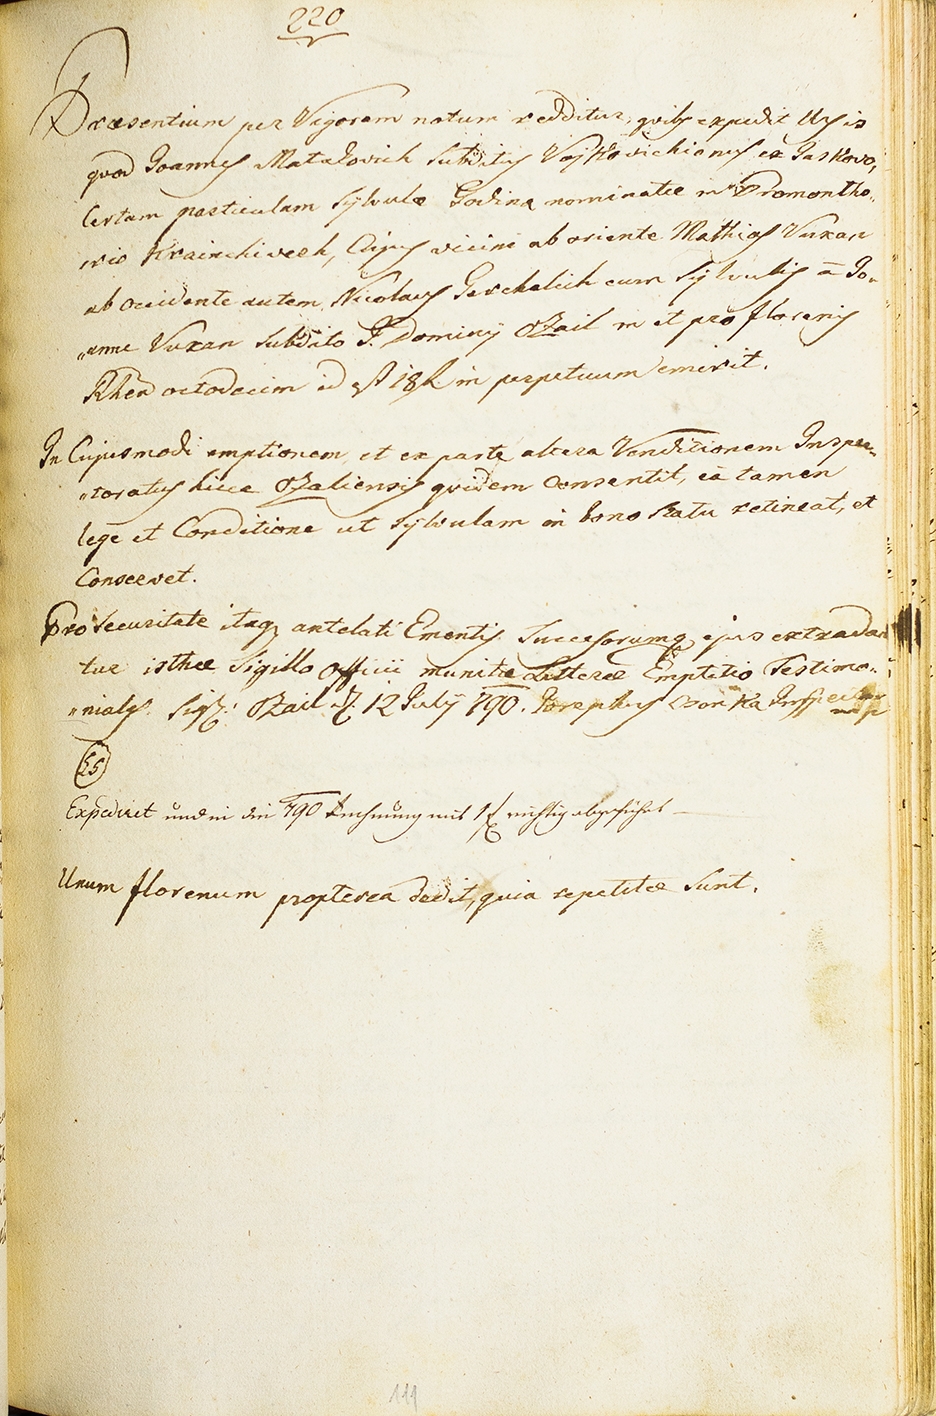 220
Præsentium per Vigorem notum redditur, quibus expedit Usis
quod Joannes Matakovich Subditus Vojkovichianus ex Jaskovo,
Certam particulam Sylvulæ Godina nominatæ in Promontho„
„rio Krainchiverh, Cujus vicini ab oriente Mathias Vuxan
ab occidente autem Nicolaus Gerchalich cum Sylvulis a Jo„
„anne Vuxan Subdito I. Dominij Ozail in et pro florenis
Rhen octodecim id est 18 f in perpetuum emerit.
In Cujusmodi emptionem et ex parte altera Venditionem Inspec„
„toratus hicce Ozaliensis quidem Consentit, ea tamen
lege et Conditione ut Sylvulam in bono Statu retineat, et
Conservet.
Pro Securitate itaq antelati Ementis Successorumq ejus extradan
tur isthæ Sigillo officii munitæ Litteræ Emptitio Testimo„
„niales. Sig: Ozail d. 12 July 790. Josephus
25
Expedirt und in die 790 Rechnung mit 1 f richtig abgeführt
Unum florenum propterea dedit, quia repetitæ Sunt.
111